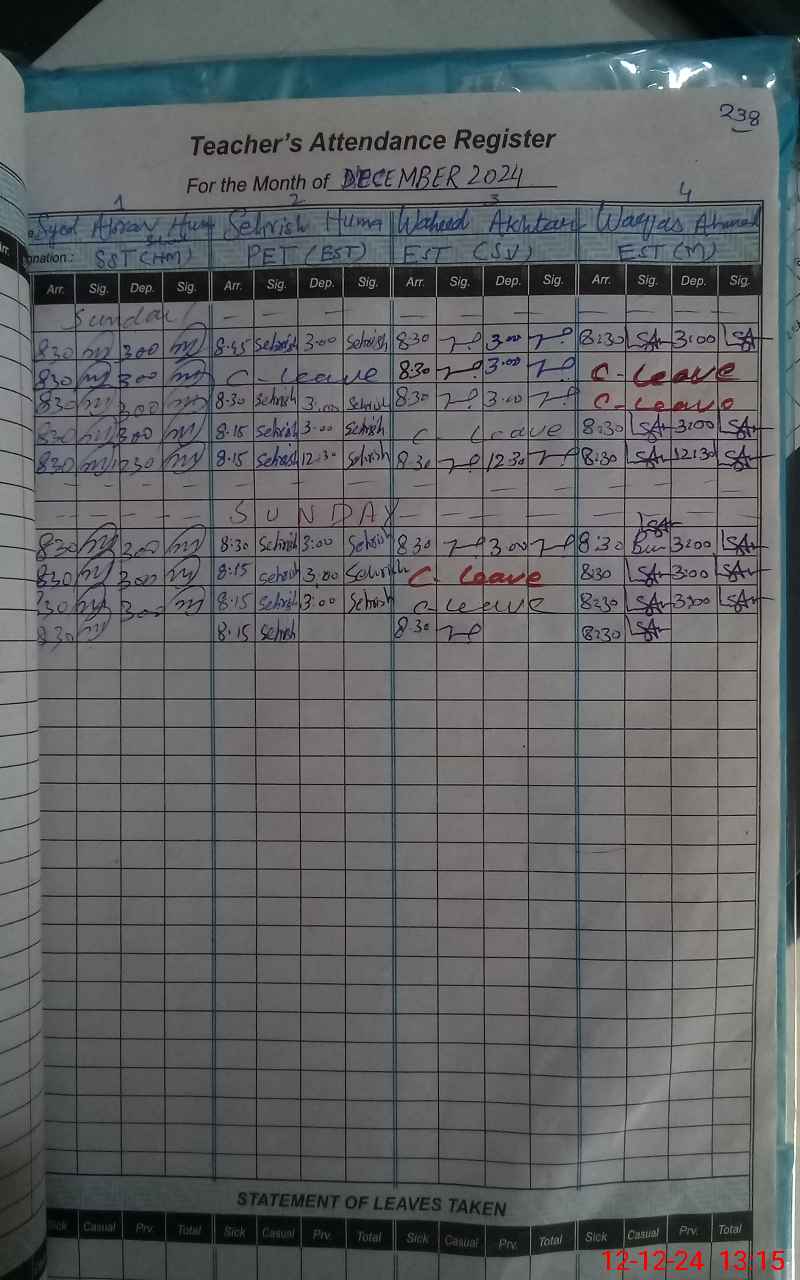 238
Teacher's Attendance Register
For the Month of DECEMBER 2024
1 2 3 4
Syed Hum Sehrish Huma Waheed Akhtar Waqas Ahmad
nation.: SST (HM) PET (EST) EST (SV) EST (M)
Arr. Sig. Dep. Sig. Arr. Sig. Dep. Sig. Arr. Sig. Dep. Sig. Arr. Sig. Dep. Sig.
Sunday — — — — — — — —
830 300 8.45 Sehrish 3.00 Sehrish 8.30 3.00 8:30 3:00
830 300 C - Leave 8.30 3.00 C - Leave
830 300 8.30 Sehrish 3.00 Sehrish 8.30 3.00 C - Leave
830 300 8.15 Sehrish 3.00 Sehrish C - Leave 8:30 3:00
830 1230 8.15 Sehrish 12:30 Sehrish 8.30 12.30 8:30 12:30
SUNDAY
830 300 8:30 Sehrish 3:00 Sehrish 8.30 3.00 8:30 3:00
830 300 8.15 Sehrish 3.00 Sehrish C. Leave 8:30 3:00
830 300 8.15 Sehrish 3:00 Sehrish C - Leave 8:30 3:00
830 8.15 Sehrish 8.30 8:30
STATEMENT OF LEAVES TAKEN
Sick Casual Prv. Total Sick Casual Prv. Total Sick Casual Prv. Total Sick Casual Prv. Total
12-12-24 13:15